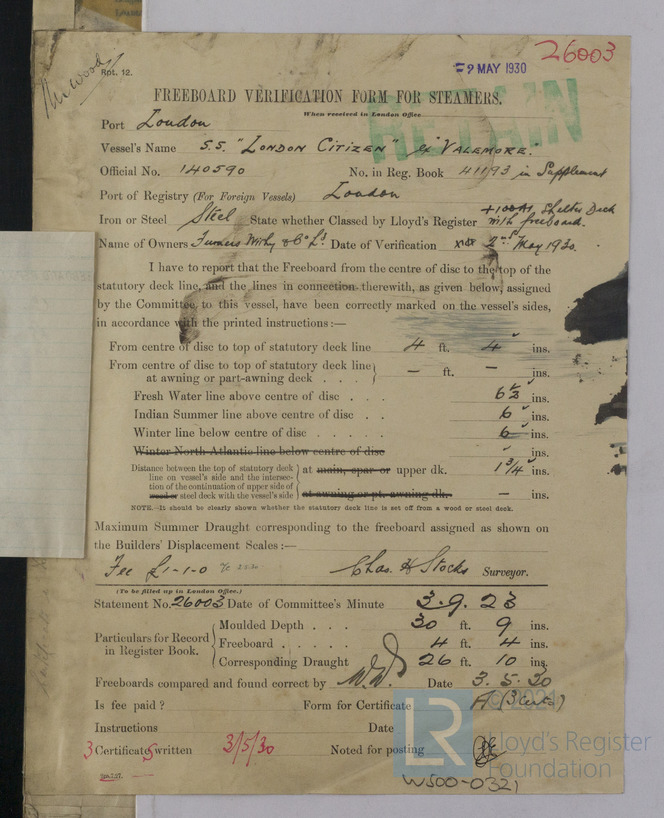 26003
Rpt. 12.
9 MAY 1930
FREEBOARD VERIFICATION FORM FOR STEAMERS.
RETAIN
When received in London Office
Port London
Vessel's Name S.S. "LONDON CITIZEN" ex "VALEMORE."
Official No. 140590 No. in Reg. Book 41193 in Supplement
Port of Registry (For Foreign Vessels) London
Iron or Steel Steel State whether Classed by Lloyd's Register +100A1 Shelter Deck with freeboard.
Name of Owners Furness Withy & Co Ld Date of Verification 2nd May 1930.
I have to report that the Freeboard from the centre of disc to the top of the
statutory deck line, and the lines in connection therewith, as given below, assigned
by the Committee to this vessel, have been correctly marked on the vessel's sides,
in accordance with the printed instructions:—
From centre of disc to top of statutory deck line 4 ft. 4 ins.
From centre of disc to top of statutory deck line
at awning or part-awning deck . . . — ft. — ins.
Fresh Water line above centre of disc . . . 6½ ins.
Indian Summer line above centre of disc . . 6 ins.
Winter line below centre of disc . . . . 6 ins.
Winter North Atlantic line below centre of disc — ins.
Distance between the top of statutory deck
line on vessel's side and the intersec-
tion of the continuation of upper side of
wood or steel deck with the vessel's side
at main, spar or upper dk. 1¾ ins.
at awning or pt. awning dk. — ins.
NOTE.—It should be clearly shown whether the statutory deck line is set off from a wood or steel deck.
Maximum Summer Draught corresponding to the freeboard assigned as shown on
the Builders' Displacement Scales:—
Fee £1-1-0 Chas. H Stocks Surveyor.
(To be filled up in London Office.)
Statement No. 26003 Date of Committee's Minute 3.9.23
Particulars for Record
in Register Book.
Moulded Depth . . . 30 ft. 9 ins.
Freeboard . . . . . 4 ft. 4 ins.
Corresponding Draught 26 ft. 10 ins.
Freeboards compared and found correct by Date 3.5.30
Is fee paid? Form for Certificate A (3 Certs)
Instructions Date
3 Certificates written 3/5/30 Noted for posting
© 2021
LR
Lloyd's Register
Foundation
W500-0321